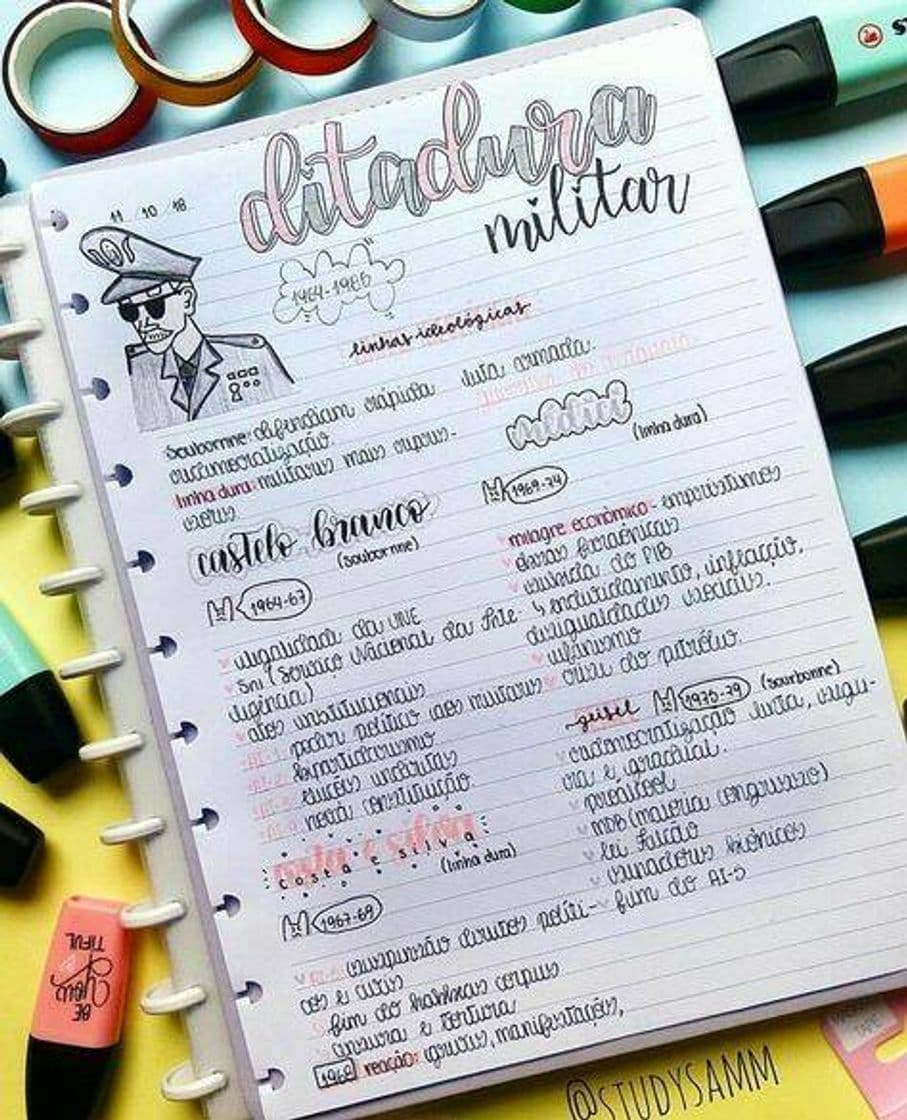 11 / 10 / 18
ditadura
militar
1964-1985
linhas ideológicas
Sourbonne: defendiam rápida
redemocratização
linha dura: militares mais
castelo branco
(sourbonne)
1964-67
ilegalidade da UNE
SNI (Serviço Nacional da Inte-
ligência)
atos institucionais
AI-1: poder político aos militares
AI-2: bipartidarismo
AI-3: eleições indiretas
AI-4: nova constituição
costa e silva
costa e silva
(linha dura)
1967-69
AI-5: suspensão direitos políti-
cos e civis
fim do habeas corpus
censura e tortura
1968 reação: greves, manifestações,
luta armada.
médici
(linha dura)
1969-74
milagre econômico - empréstimos
obras faraônicas
subida do PIB
↳ endividamento, inflação,
desigualdades sociais.
ufanismo
crise do petróleo
geisel
1975-79
(sourbonne)
redemocratização lenta, segu-
ra e gradual.
proálcool
MDB (maioria congresso)
lei falcão
senadores biônicos
fim do AI-5
BE
YOU
TIFUL
@STUDYSAMM